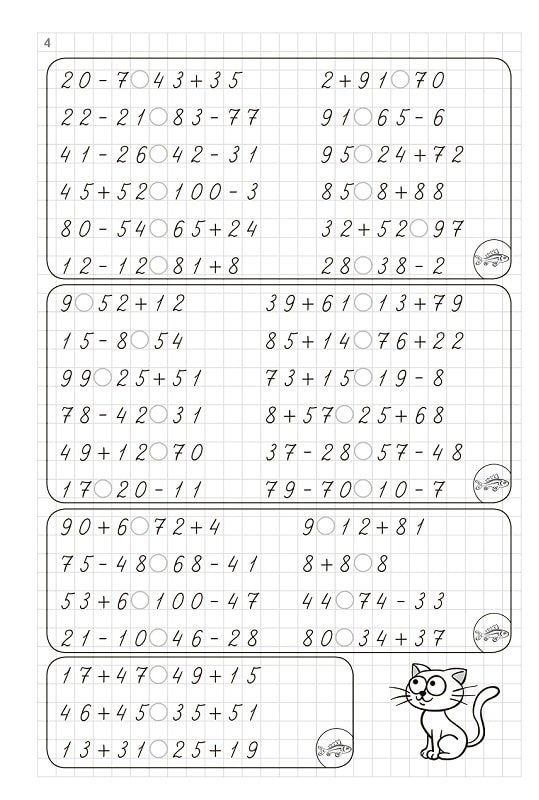 4
20-7○43+35 2+91○70
22-21○83-77 91○65-6
41-26○42-31 95○24+72
45+52○100-3 85○8+88
80-54○65+24 32+52○97
12-12○81+8 28○38-2
9○52+12 39+61○13+79
15-8○54 85+14○76+22
99○25+51 73+15○19-8
78-42○31 8+57○25+68
49+12○70 37-28○57-48
17○20-11 79-70○10-7
90+6○72+4 9○12+81
75-48○68-41 8+8○8
53+6○100-47 44○74-33
21-10○46-28 80○34+37
17+47○49+15
46+45○35+51
13+31○25+19